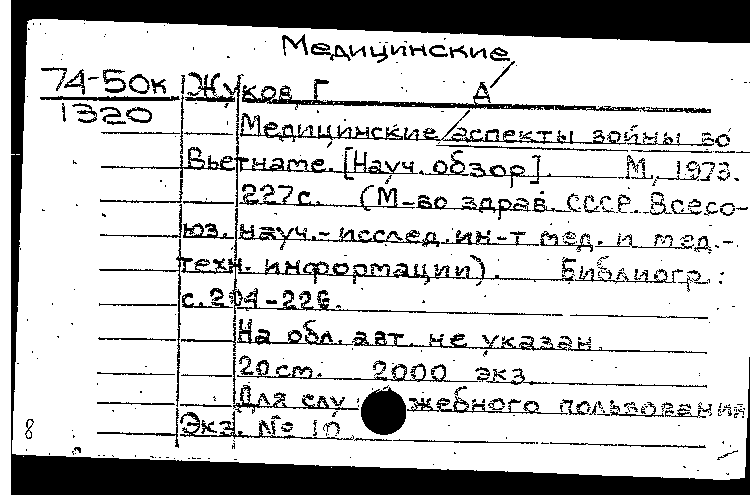 Медицинские
74-50к Жуков Г Д
1320
Медицинские/аспекты войны во
Вьетнаме. [Науч. обзор]. М., 1973.
227с. (М-во здрав. СССР. Всесо-
юз. науч.-исслед. ин-т мед. и мед.-
техн. информации). Библиогр.:
с. 204-226.
На обл. авт. не указан.
20см. 2000 экз.
Для служебного пользования
Экз. № 10
8